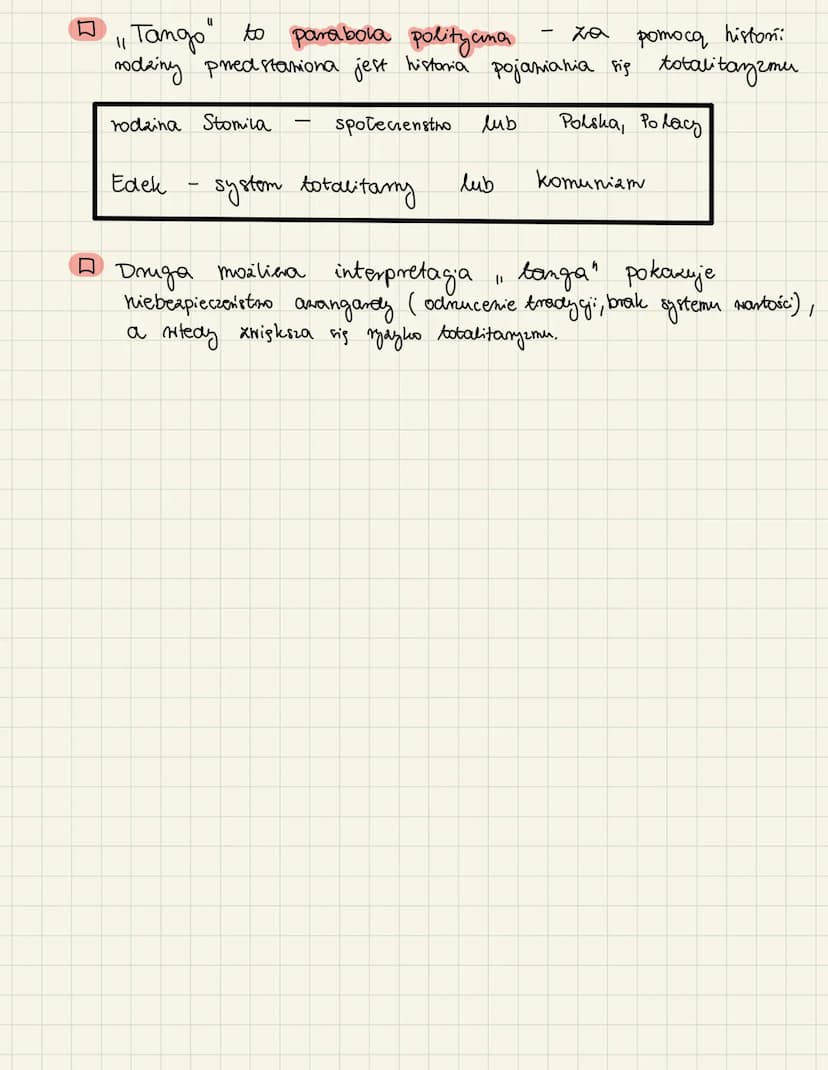 „Tango" to parabola polityczna - za pomocą historii
rodziny przedstawiona jest historia pojawiania się totalitaryzmu
rodzina Stomila - społeczeństwo lub Polska, Polacy
Edek - system totalitarny lub komunizm
Druga możliwa interpretacja „tanga" pokazuje
niebezpieczeństwo awangardy (odrzucenie tradycji, brak systemu wartości),
a wtedy zwiększa się ryzyko totalitaryzmu.